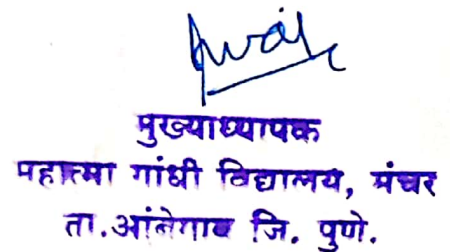 मुख्याध्यापक
महात्मा गांधी विद्यालय, मंचर
ता.आंबेगाव जि. पुणे.